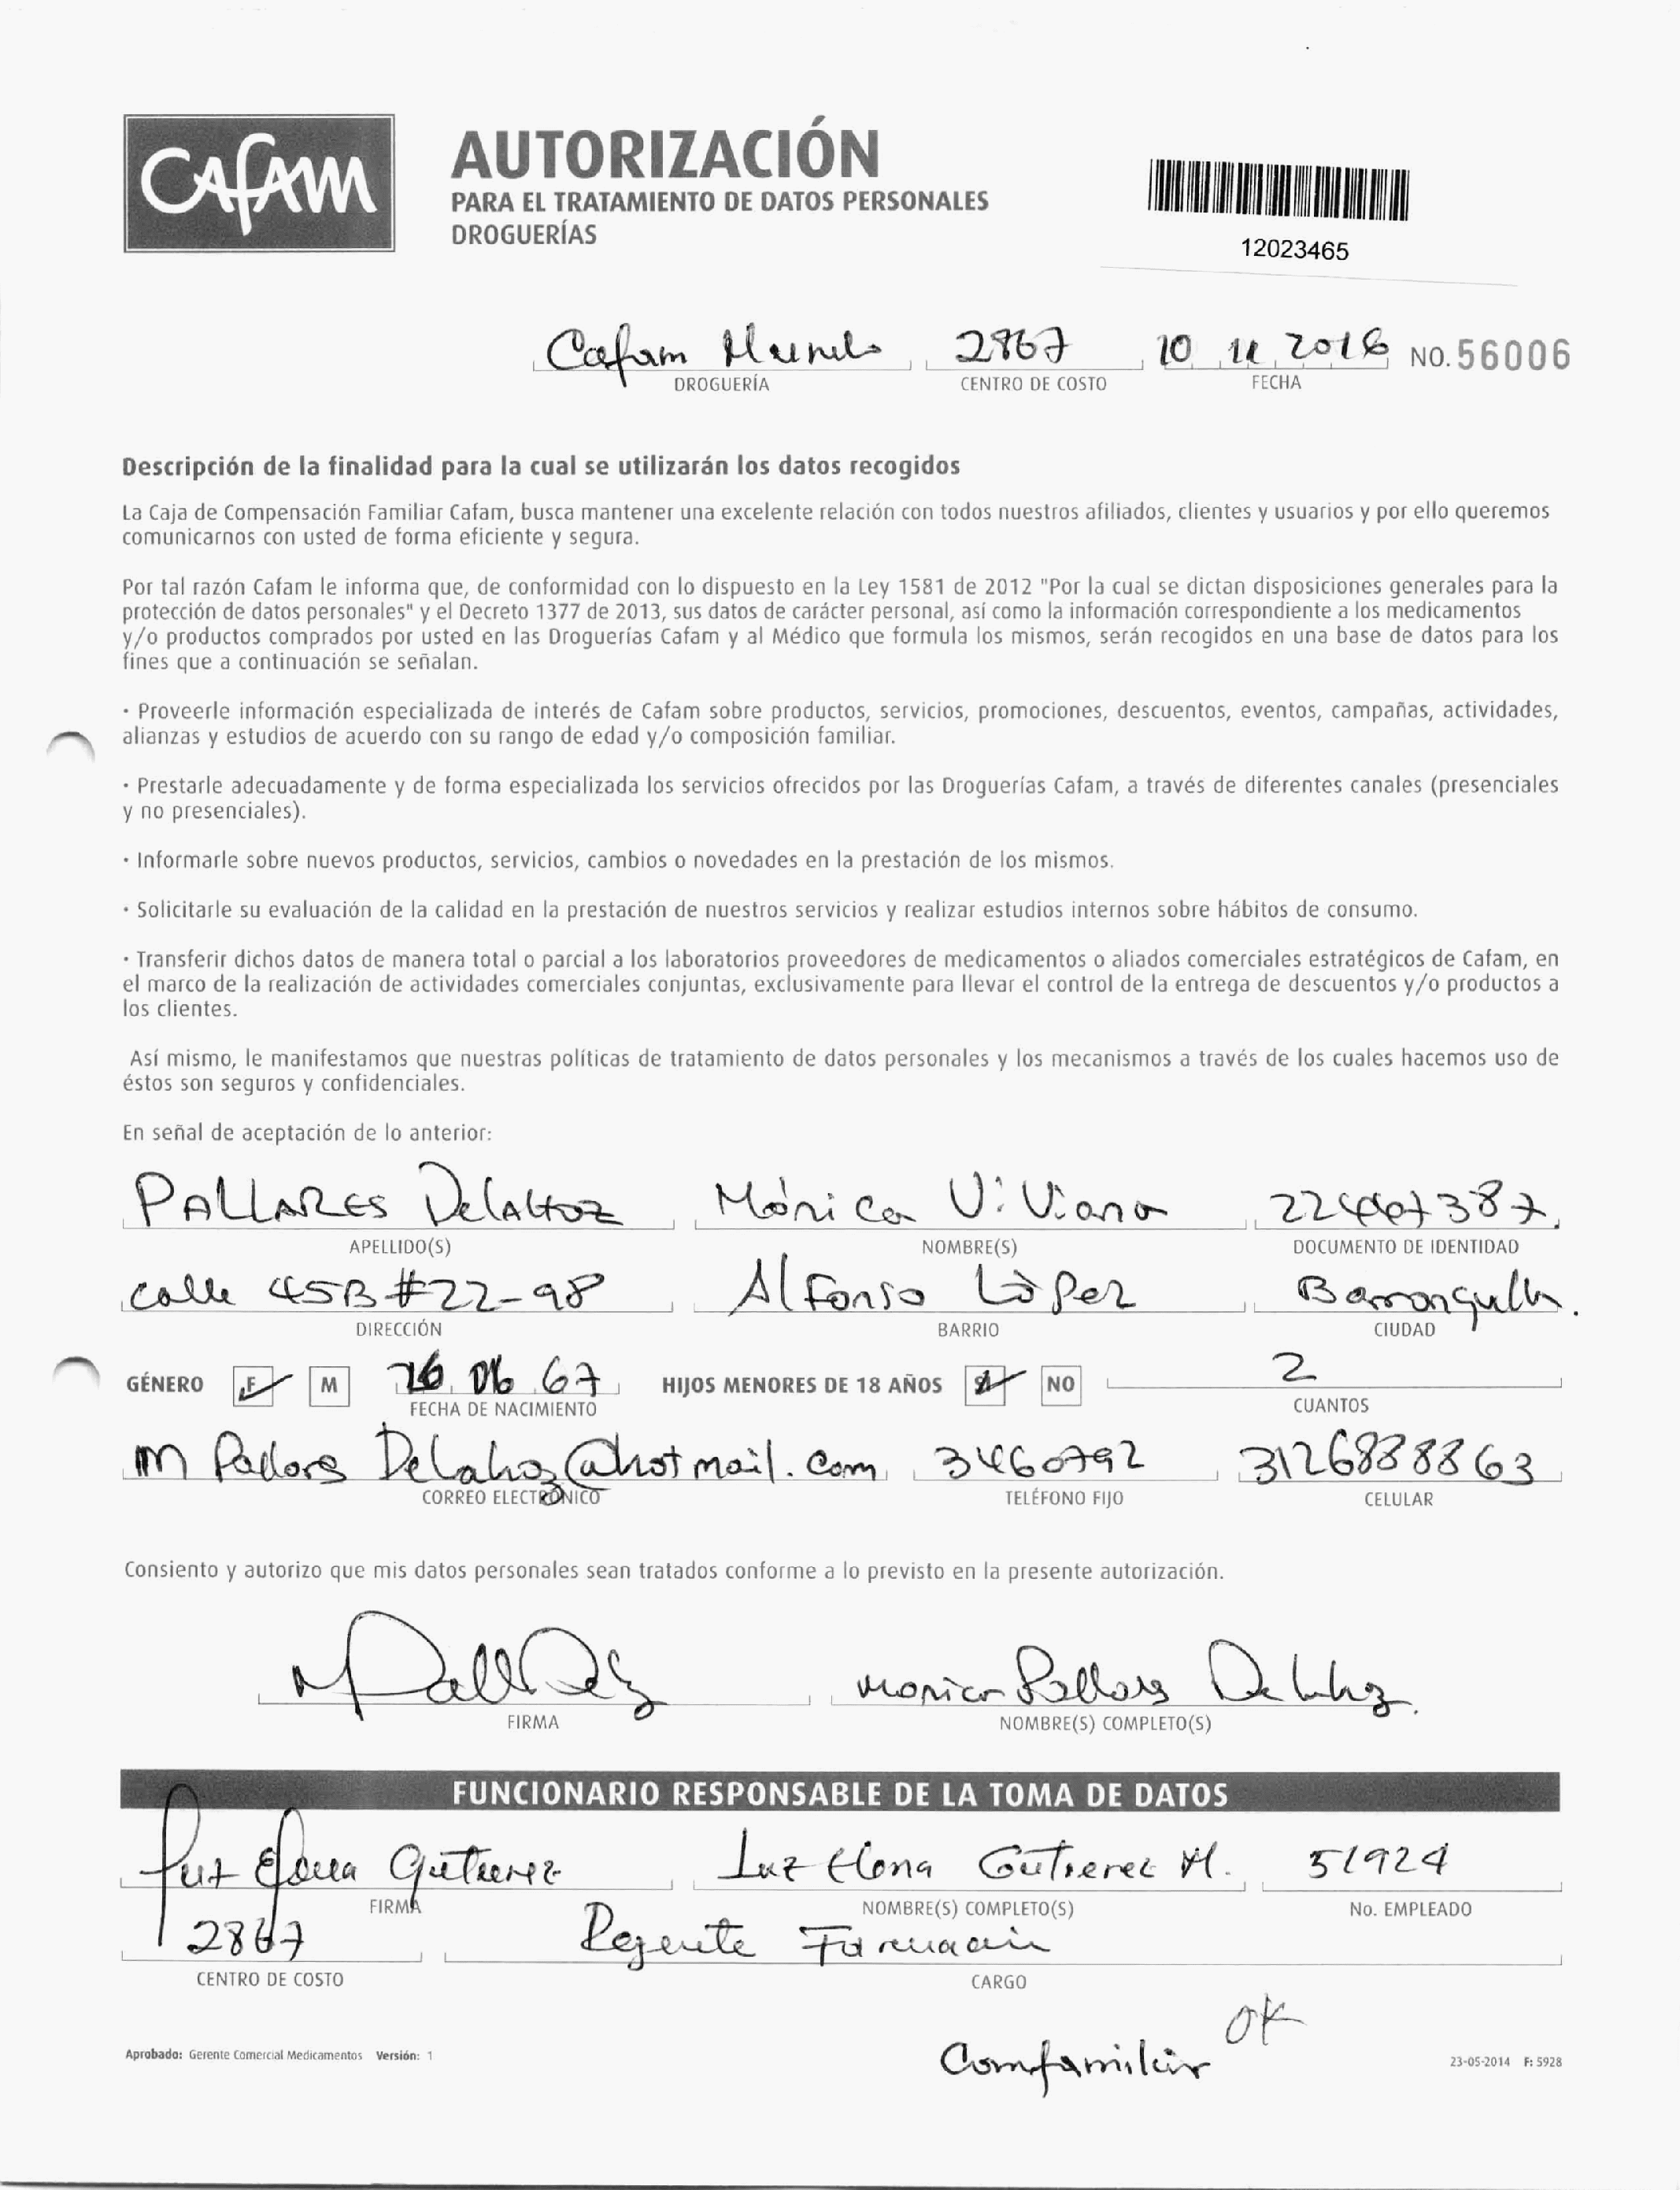 CAFAM
AUTORIZACIÓN
PARA EL TRATAMIENTO DE DATOS PERSONALES
DROGUERÍAS
12023465
Cafam 2867 10 11 2016 NO. 56006
DROGUERÍA CENTRO DE COSTO FECHA
Descripción de la finalidad para la cual se utilizarán los datos recogidos
La Caja de Compensación Familiar Cafam, busca mantener una excelente relación con todos nuestros afiliados, clientes y usuarios y por ello queremos
comunicarnos con usted de forma eficiente y segura.
Por tal razón Cafam le informa que, de conformidad con lo dispuesto en la Ley 1581 de 2012 "Por la cual se dictan disposiciones generales para la
protección de datos personales" y el Decreto 1377 de 2013, sus datos de carácter personal, así como la información correspondiente a los medicamentos
y/o productos comprados por usted en las Droguerías Cafam y al Médico que formula los mismos, serán recogidos en una base de datos para los
fines que a continuación se señalan.
· Proveerle información especializada de interés de Cafam sobre productos, servicios, promociones, descuentos, eventos, campañas, actividades,
alianzas y estudios de acuerdo con su rango de edad y/o composición familiar.
· Prestarle adecuadamente y de forma especializada los servicios ofrecidos por las Droguerías Cafam, a través de diferentes canales (presenciales
y no presenciales).
· Informarle sobre nuevos productos, servicios, cambios o novedades en la prestación de los mismos.
· Solicitarle su evaluación de la calidad en la prestación de nuestros servicios y realizar estudios internos sobre hábitos de consumo.
· Transferir dichos datos de manera total o parcial a los laboratorios proveedores de medicamentos o aliados comerciales estratégicos de Cafam, en
el marco de la realización de actividades comerciales conjuntas, exclusivamente para llevar el control de la entrega de descuentos y/o productos a
los clientes.
Así mismo, le manifestamos que nuestras políticas de tratamiento de datos personales y los mecanismos a través de los cuales hacemos uso de
éstos son seguros y confidenciales.
En señal de aceptación de lo anterior:
PALLARES DelaHoz Mónica Viviana
APELLIDO(S) NOMBRE(S) DOCUMENTO DE IDENTIDAD
calle 45B #22-98 Alfonso Lòpez Barranquilla.
DIRECCIÓN BARRIO CIUDAD
GÉNERO F M 06 67 HIJOS MENORES DE 18 AÑOS NO 2
FECHA DE NACIMIENTO CUANTOS
m Pallares Delahoz@hotmail.com 3460792 3126888863
CORREO ELECTRÓNICO TELÉFONO FIJO CELULAR
Consiento y autorizo que mis datos personales sean tratados conforme a lo previsto en la presente autorización.
monica Pallares Delahoz.
FIRMA NOMBRE(S) COMPLETO(S)
FUNCIONARIO RESPONSABLE DE LA TOMA DE DATOS
Luz Elena Gutierrez Luz Elena Gutierrez M. 51924
FIRMA NOMBRE(S) COMPLETO(S) No. EMPLEADO
2867 Regente Farmacia
CENTRO DE COSTO CARGO
OK
Comfamiliar
Aprobado: Gerente Comercial Medicamentos Versión: 1 23-05-2014 F: 5928